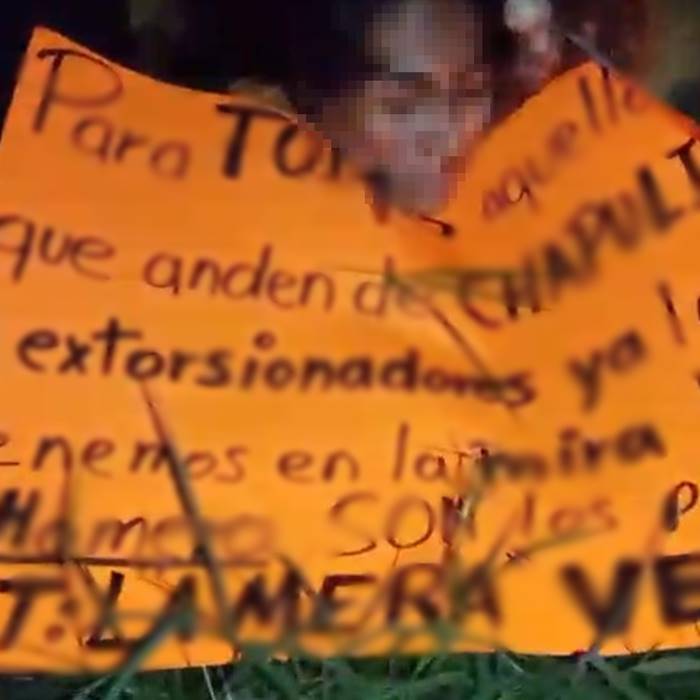 Para aquello
que anden de CHAPULI
extorsionadores ya l
enemos en la mira
SON los P
T: LA MERA VE